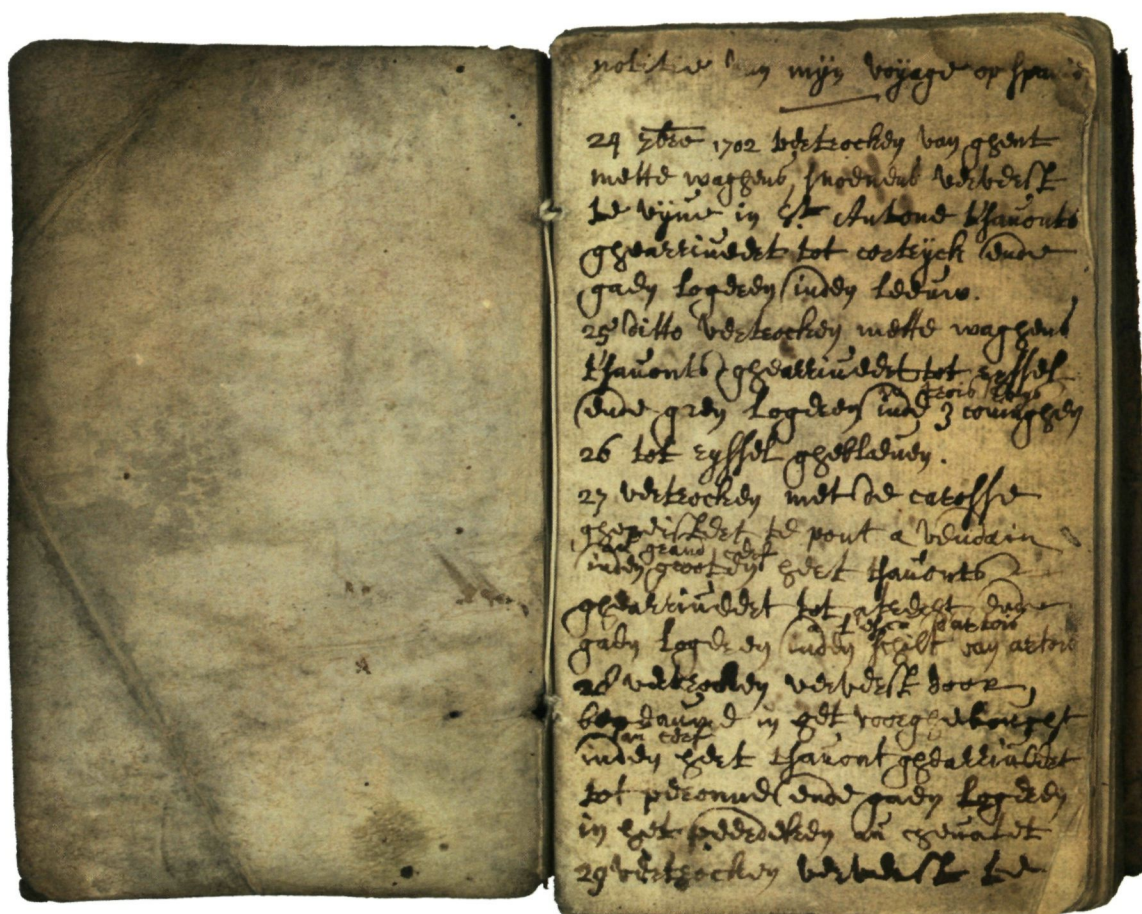 notitie van mijn voyage op spa
24 7bre 1702 vertrocken van ghent
mette waghens, snoenens ververst
te vijve in St. Antone tsavonts
ghearriveert tot cortryck ende
gaen logeren inden leeuw.
25 ditto vertrocken mette waghens
tsavonts ghearriveert tot ryssel
trois roys
ende gaen logeren inde 3 coninghen
26 tot ryssel ghebleven.
27 vertrocken met de carosse
te pont a vendain
au grand cerf
inden grooten hert tsavonts
ghearriveert tot atrecht ende
a l'escu d'artois
gaen logeren inden schilt van artois
28 vertrocken ververst door
in het voorghebourght
au cerf
inden hert tsavont ghearriveert
tot peronne ende gaen logeren
in het peerdeken au chevalet
29 vertrocken ververst te